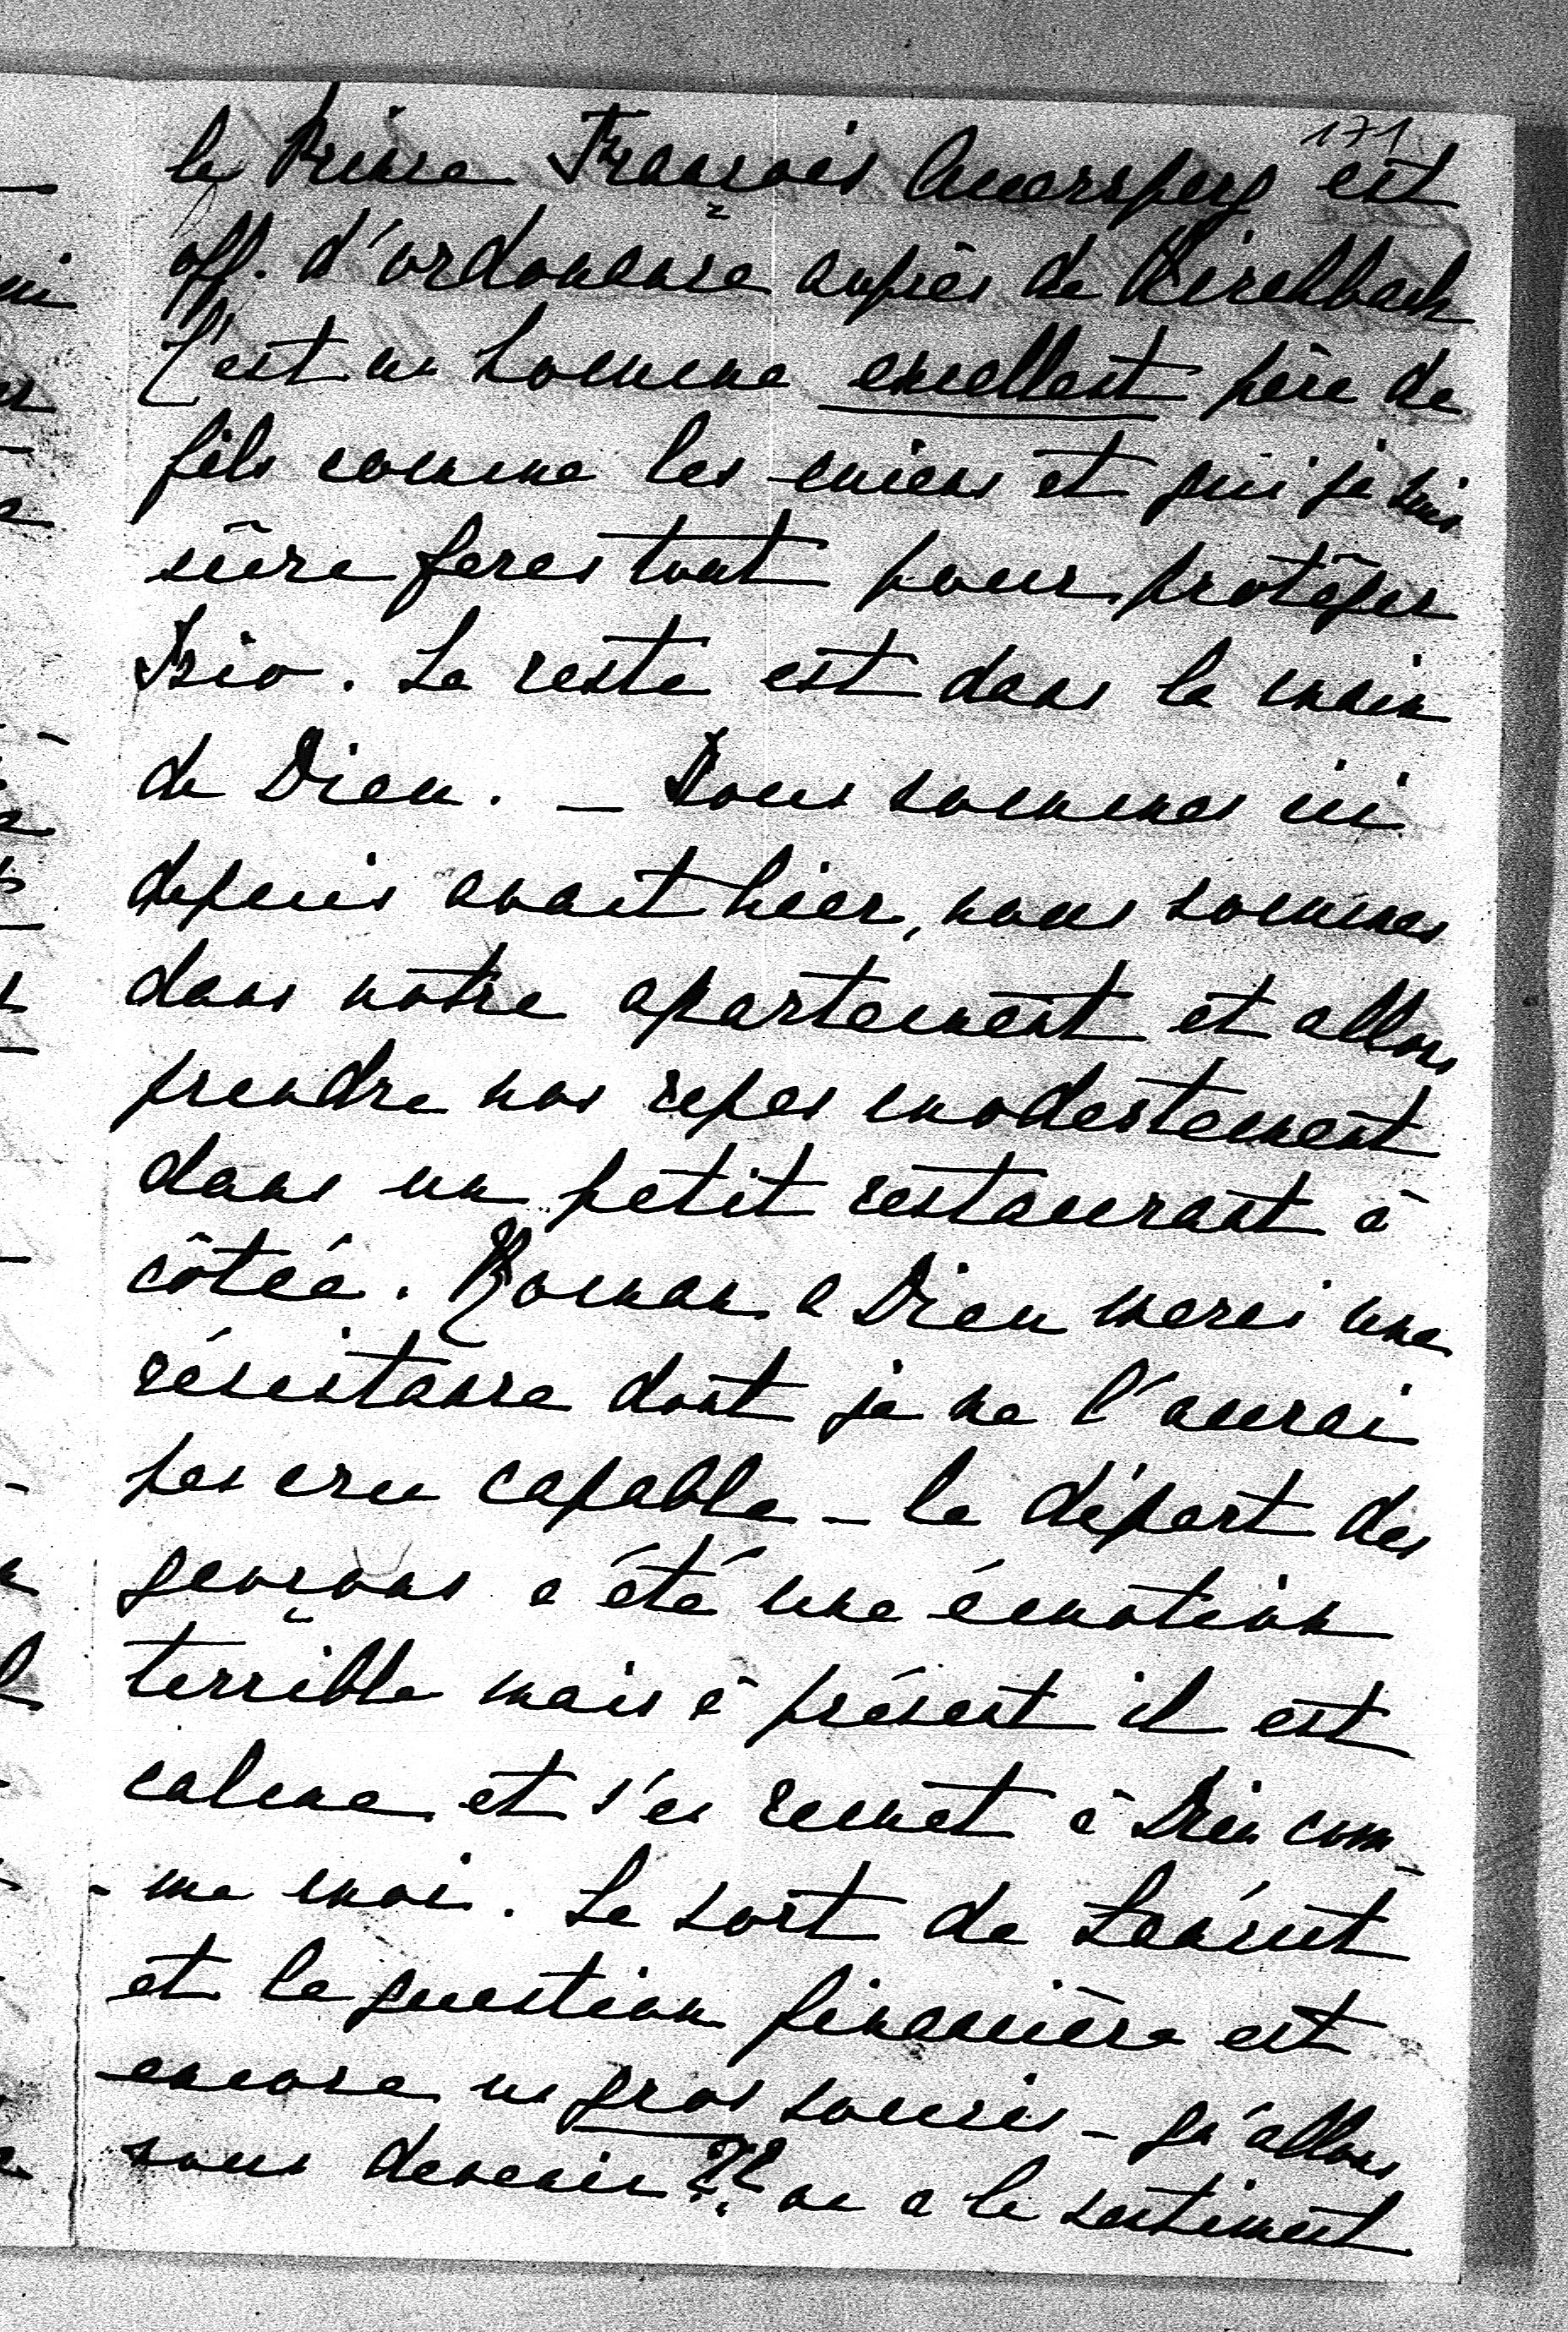 171
le Prince François Auersperg est
off. d'ordonance auprès de Kirchbach
C'est un homme excellent père de
fils comme les miens et qui je suis
sûre feras tout pour protéger
. Le reste est dans la main
de Dieu. — Nous sommes ici
depuis avant hier, nous sommes
dans notre apartement et allons
prendre nos repas modestement
dans un petit restaurant à
côtée. Roman a Dieu merci une
résistance dont je ne l'aurai
pas cru capable — le départ des
garçons a été une émotion
terrible mais à présent il est
calme et s'en remet à Dieu com-
-me moi. Le sort de Łańcut
et la question financière est
encore un gros soucis — qu'allons
nous devenir ?? on a le sentiment